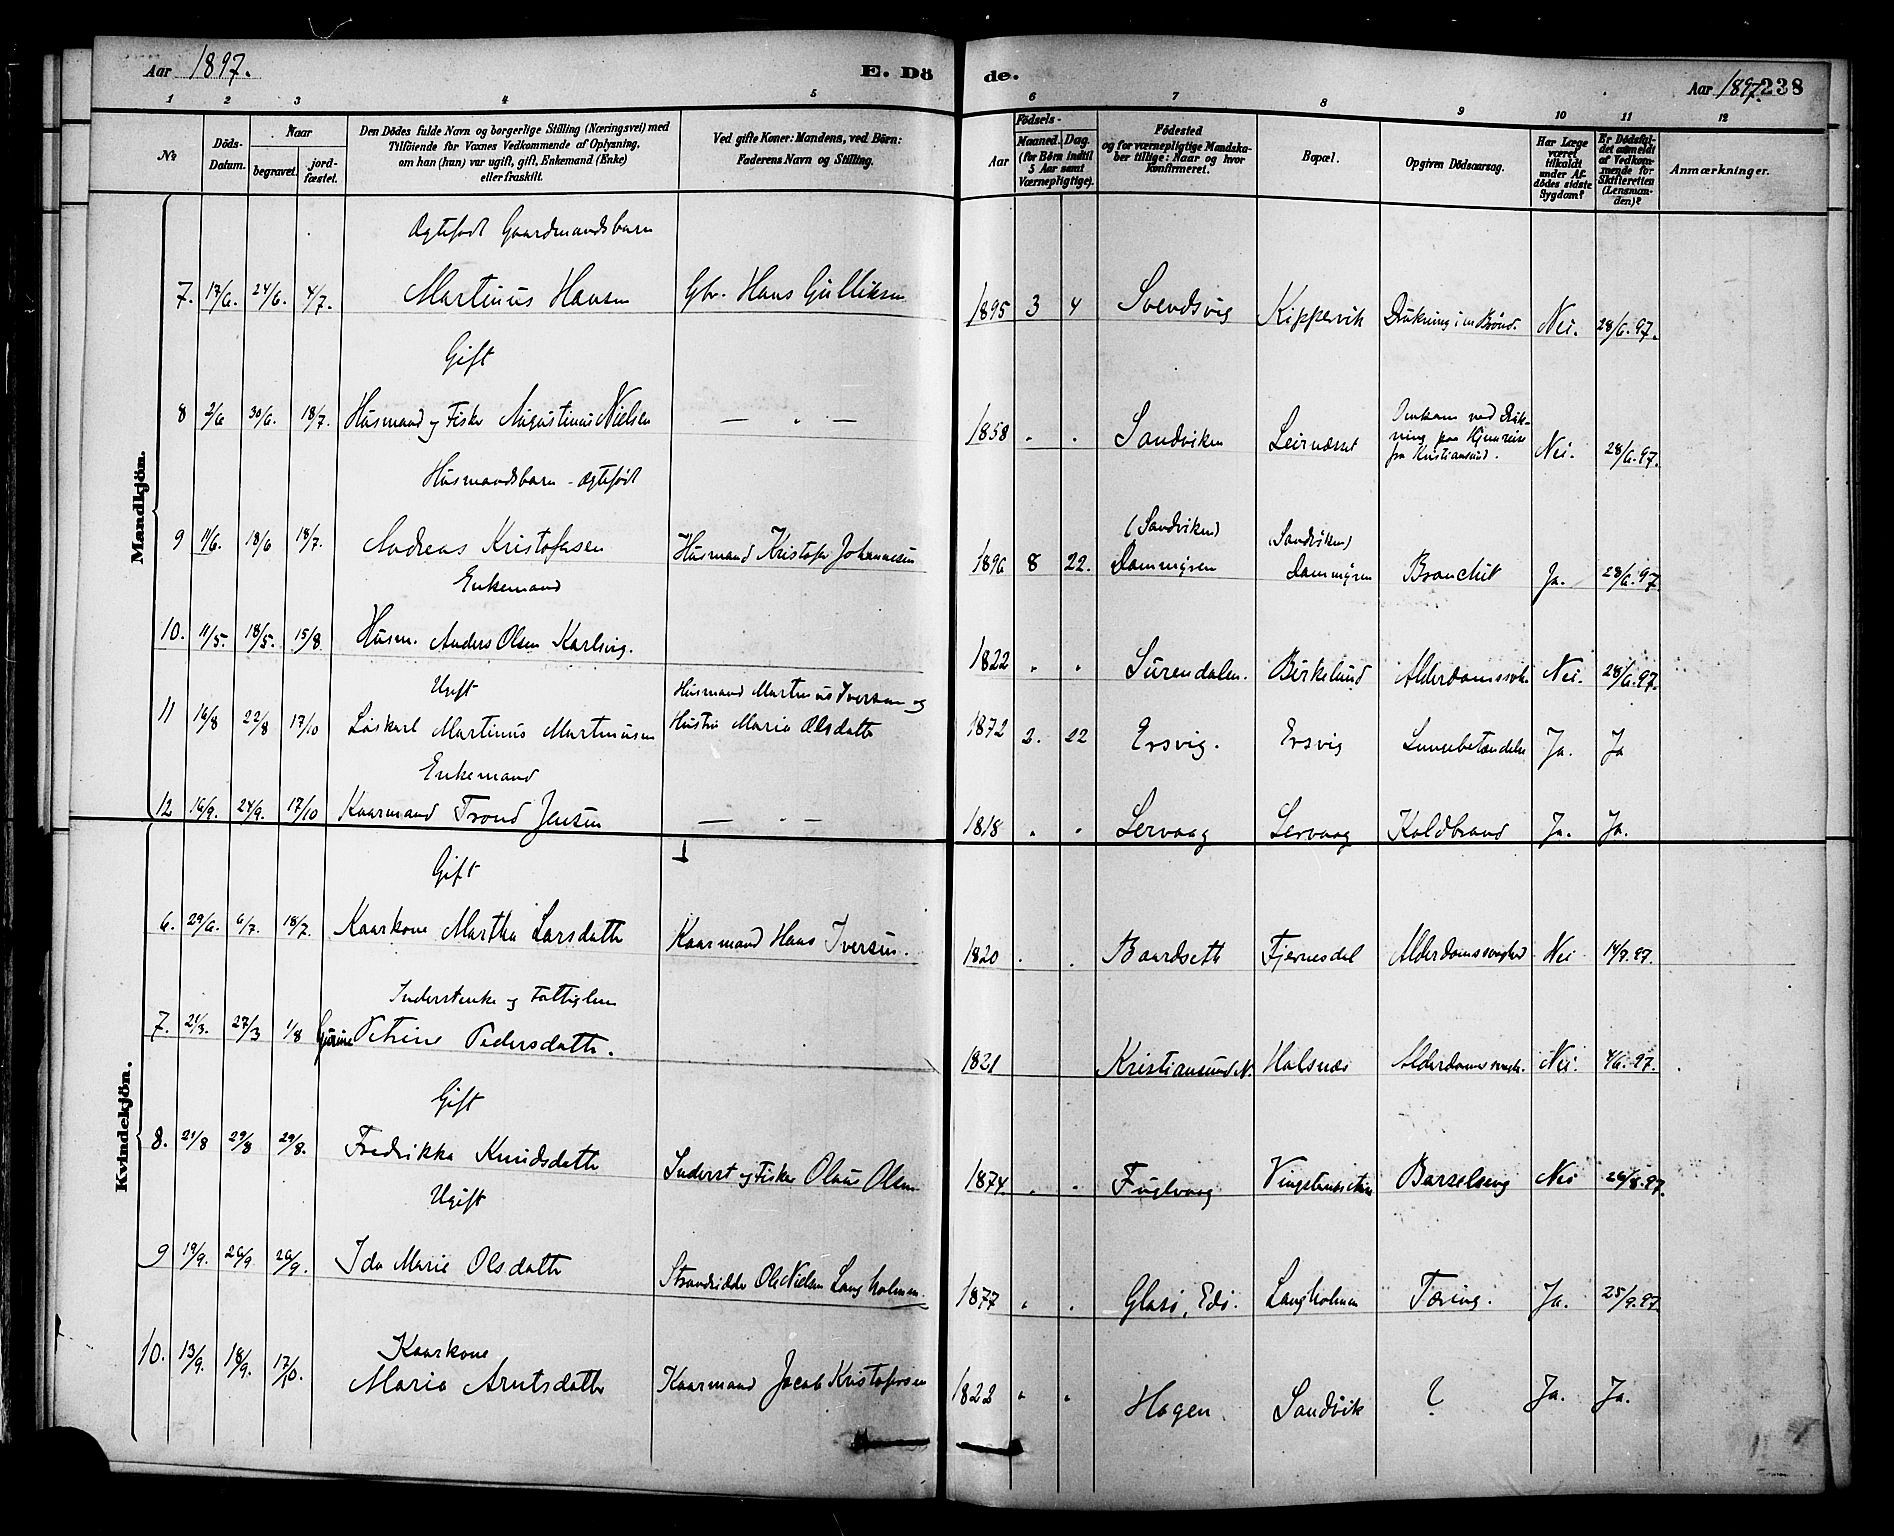 Aar 1897.
E. Döde.
Aar 1897. 238
1 2 3 4 5 6 7 8 9 10 11 12
No
Döds-Datum.
Naar
begravet.
jord-fæstet.
Den Dödes fulde Navn og borgerlige Stilling (Næringsvei) med
Tilföiende for Voxnes Vedkommende af Oplysning,
om han (hun) var ugift, gift, Enkemand (Enke)
eller fraskilt.
Ved gifte Koner: Mandens, ved Börn:
Faderens Navn og Stilling.
Födsels-
Aar
Maaned. Dag.
(for Börn indtil
5 Aar samt
Værnepligtige).
Födested
og for værnepligtige Mandska-
ber tillige: Naar og hvor
konfirmeret.
Bopæl.
Opgiven Dödsaarsag.
Har Læge
været
tilkaldt
under Af-
dödes sidste
Sygdom?
Er Dödsfal-
det anmeldt
af Vedkom-
mende for
Skifteretten
(Lensman-
den)?
Anmærkninger.
Mandkjön.
Ægtefødt Gaardmandsbarn
7. 17/6. 24/6. 4/7. Martinus Hansen Gbr. Hans Gulliksen 1895 3 4 Svendsvig Kippervik Drukning i en Brønd. Nei. 28/6.97.
Gift
8 2/6 30/6. 18/7. Husmand og Fisker Augustinus Nielsen — " — 1858 " " Sandviken Leirnæsset Omkom ved Druk-
ning paa Hjemreise
fra Kristiansund. Nei. 28/6.97.
Husmandsbarn - ægtefødt
9 11/6. 18/6 18/7. Andreas Kristofersen Husmand Kristofer Johannesen 1896 8 22. (Sandviken)
Dammyren (Sandviken)
Dammyren Bronchit Ja. 28/6.97.
Enkemand
10. 11/5. 18/5. 15/8. Husm. Anders Olsen Karlsvig. 1822 " " Surendalen. Birkelund Alderdomssvkh. Nei. 28/6.97.
Ugift
11 16/8 22/8 17/10 Løskarl Martinus Martinusen Husmand Martinus Iversen og
Hustru Marie Olsdatter 1872 2. 22 Ersvig. Ersvig Lungebetændelse Ja. Ja
Enkemand
12 16/9. 24/9. 17/10 Kaarmand Trond Jensen — " — 1818 " " Lervaag Lervaag Koldbrand Ja. Ja.
Kvindekjön.
Gift
6. 29/6. 6/7. 18/7. Kaarkone Martha Larsdatter Kaarmand Hans Iversen. 1820 " " Baardseth Fjernesdal Alderdomssvaghed Nei 14/9.97.
Inderstenke og Fattiglem
7. 21/3. 27/3 1/8 Gjurine Petrine Pedersdatter. 1821 Kristiansund N. Holsnæs Alderdomssvagh. Nei. 4/6.97.
Gift
8. 21/8 29/8 29/8. Fredrikke Knudsdatter Inderst og Fisker Olaus Olsen 1874. " " Fuglvaag Barselseng Nei 26/8.97.
Ugift
9 19/9. 26/9 26/9. Ida Marie Olsdatter Strandsidder Ole Nielsen Langholmen. 1877 " " Glasø, Edø. Langholmen Tæring. Ja. 25/9.97.
Kaarkone
10. 13/9. 18/9. 17/10. Maria Arntsdatter Kaarmand Jacob Kristofersen 1822 " " Hagen. Sandvik ? Ja. Ja.